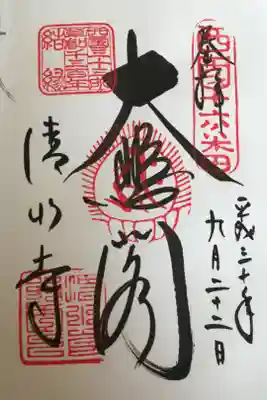 西国十六番
奉拝
平成三十年
九月二十二日
大悲閣
結縁
清水寺